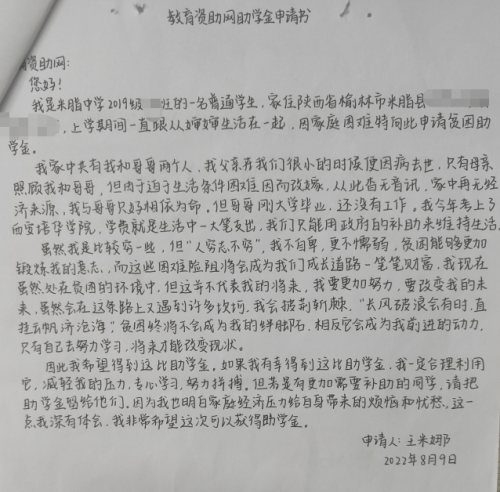 教育资助网助学金申请书
资助网:
您好!
我是米脂中学2019级 班的一名普通学生,家住陕西省榆林市米脂县
,上学期间一直跟从婶婶生活在一起,因家庭困难特向此申请贫困助
学金。
我家中共有我和哥哥两个人,我父亲在我们很小的时候便因病去世,只有母亲
照顾我和哥哥,但由于迫于生活条件困难因而改嫁,从此杳无音讯,家中再无经
济来源,我与哥哥只好相依为命。但哥哥刚大学毕业,还没有工作。我今年考上了
西安培华学院,学费就是生活中一大笔支出,我们只能用政府的补助来维持生活。
虽然我是比较穷一些,但“人穷志不穷”,我不自卑,更不懦弱,贫困能够更加
锻炼我的意志,而这些困难险阻将会成为我们成长道路一笔笔财富,我现在
虽然处在贫困的环境中,但这并不代表我的将来,我要更加努力,要改变我的未
来,虽然会在这条路上又遇到许多坎坷,我会披荆斩棘,“长风破浪会有时,直
挂云帆济沧海”贫困终将不会成为我的绊脚石,相反它会成为我前进的动力,
只有自己去努力学习,将来才能改变现状。
因此我希望得到这比助学金。如果我有幸得到这比助学金,我一定合理利用
它,减轻我的压力,专心学习,努力拼搏。但若是有更加需要补助的同学,请把
助学金留给他们。因为我也明白家庭经济压力给自身带来的烦恼和忧愁,这一
点我深有体会,我非常希望这次可以获得助学金。
申请人:王米娜
2022年8月9日